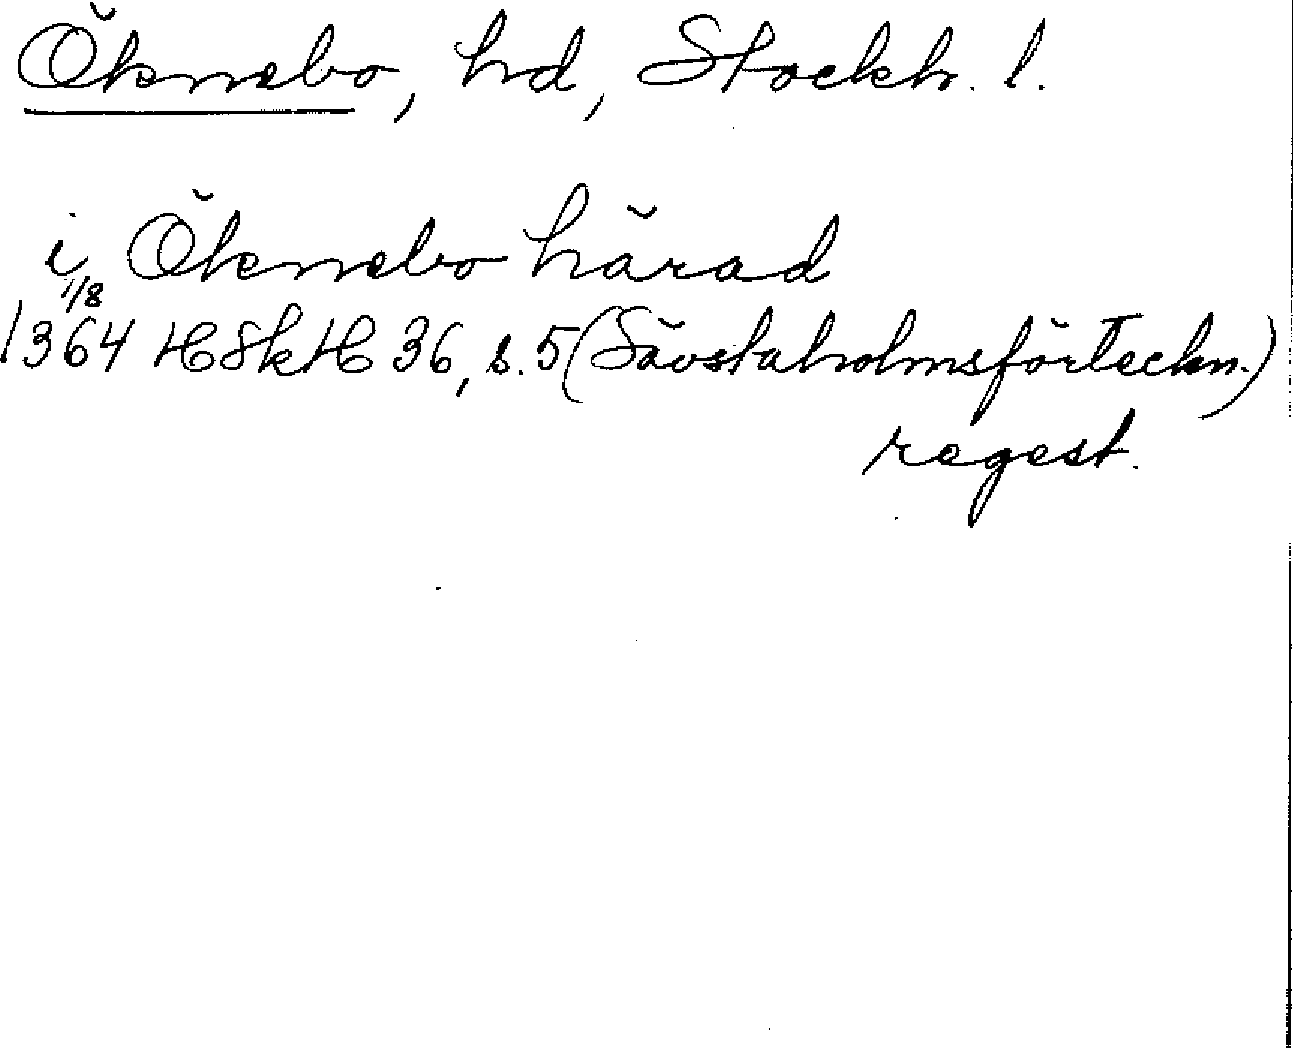 Öknebo, hd, Stockh. l.
i Öknebo härad
1/8
1364 HSkH 36, s. 5 (Sävstaholmsförteckn.)
regest.